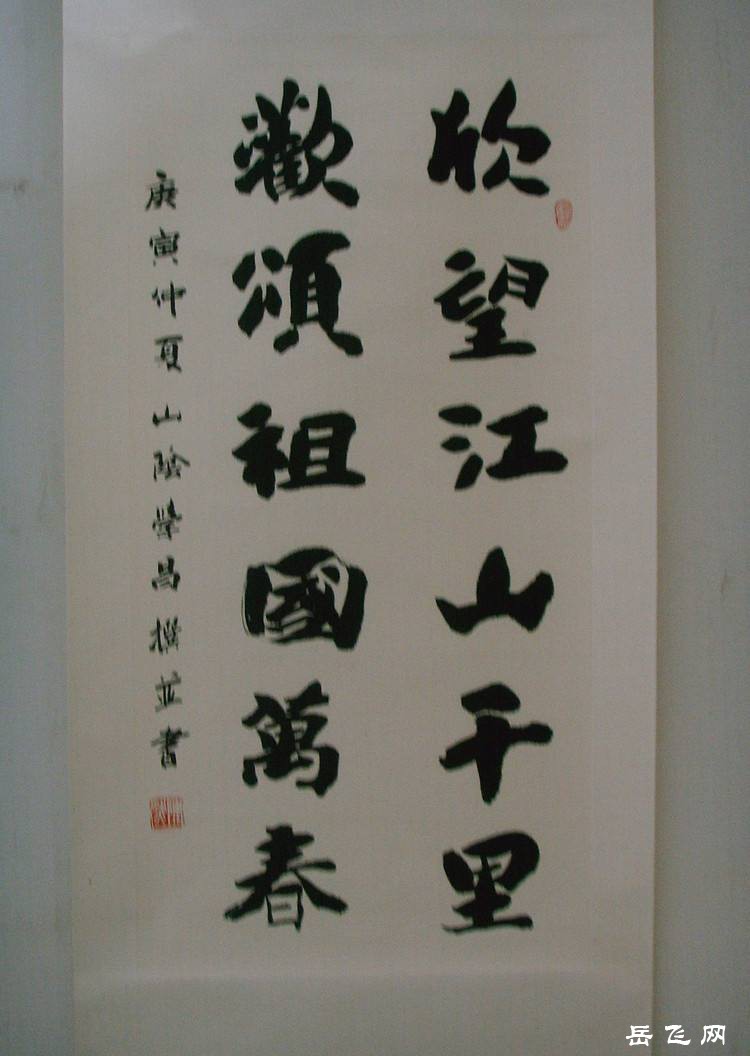 欣望江山千里
歡頌祖國萬春
庚寅仲夏山陰學昌撰並書
岳飞网